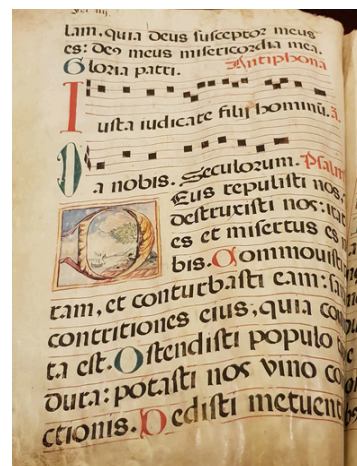 lam, quia deus susceptor meus
es: deus meus misericordia mea.
Gloria patri. Antiphona
Iusta iudicate filij hominū. A.
Da nobis. Seculorum. Psalm
DEus repulisti nos,
destruxisti nos: irat
es et misertus es n
bis. Commouisti
ram, et conturbasti eam: sa
contritiones eius, quia com
ta est. Ostendisti populo
dura: potasti nos vino co
ctionis. Dedisti metuent